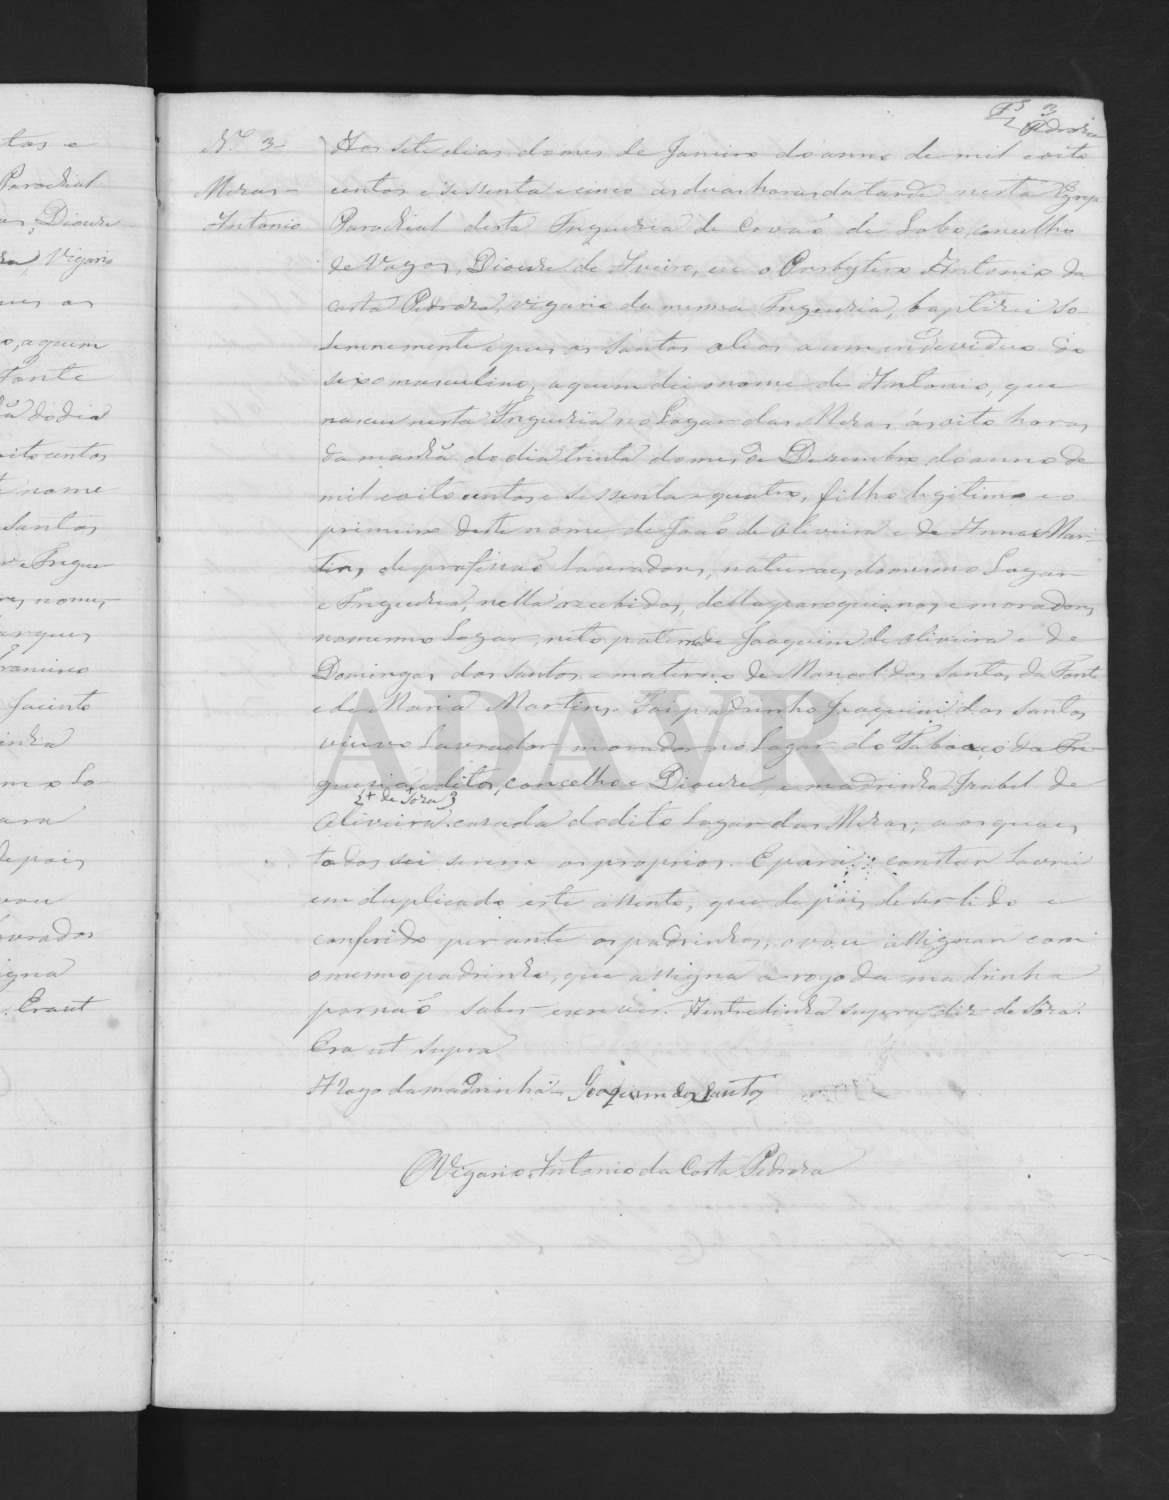 3
Pedroza
N.º 3
Mezas =
Antonio
Aos sete dias do mes de Janeiro do anno de mil e oito
centos e sessenta e cinco ás duas horas da tarde nesta Egreja
Parochial desta Freguezia de Covaõ de Lobo, concelho
de Vagos, Diocese de Aveiro, eu o Presbytero Antonio da
Costa Pedroza, vigario da mesma Freguezia, baptizei so-
lemnemente e pus os santos oleos a um individuo do
sexo masculino, a quem dei o nome de Antonio, que
nasceu nesta Freguezia no Lugar das Mezas, ás oito horas
da manhã do dia trinta do mes de Dezembro do anno de
mil e oito centos e sessenta e quatro, filho legitimo e o
primeiro deste nome de Joaõ de Oliveira e de Anna Mar-
tins, de profissaõ lavradores, naturaes do mesmo Lugar
e Freguezia, nella recebidos, della paroquianos e moradores
no mesmo Lugar, neto paterno de Joaquim de Oliveira e de
Domingas dos Santos e materno de Manoel dos Santos da Fonte
e de Maria Martins. Foi padrinho Joaquim dos Santos
viuvo Lavrador morador no Lugar do Taboaço da Fre-
guezia, ditos, concelho e Diocese, e madrinha Izabel de
de Soza
Oliveira casada do dito Lugar das Mezas; aos quaes
todos sei serem os proprios. E para constar lavrei
em duplicado este assento, que depois de ser lido e
conferido perante os padrinhos, o vou assignar com
o mesmo padrinho, que assigna a rogo da madrinha
por naõ saber escrever. A entrelinha supra diz de Soza.
Era ut supra
A rogo da madrinha = Joaquim dos Santos
O Vigario Antonio da Costa Pedroza
tas e
Parochial
Diocese
Vigario
o, a quem
Fonte
do dia
oito centos
nome
Santos
e Fregue
nomes
arques
Francisco
Jacinto
inha
mo Lo
ara
depois
vou
avrador
igna
. Era ut
ADAVR